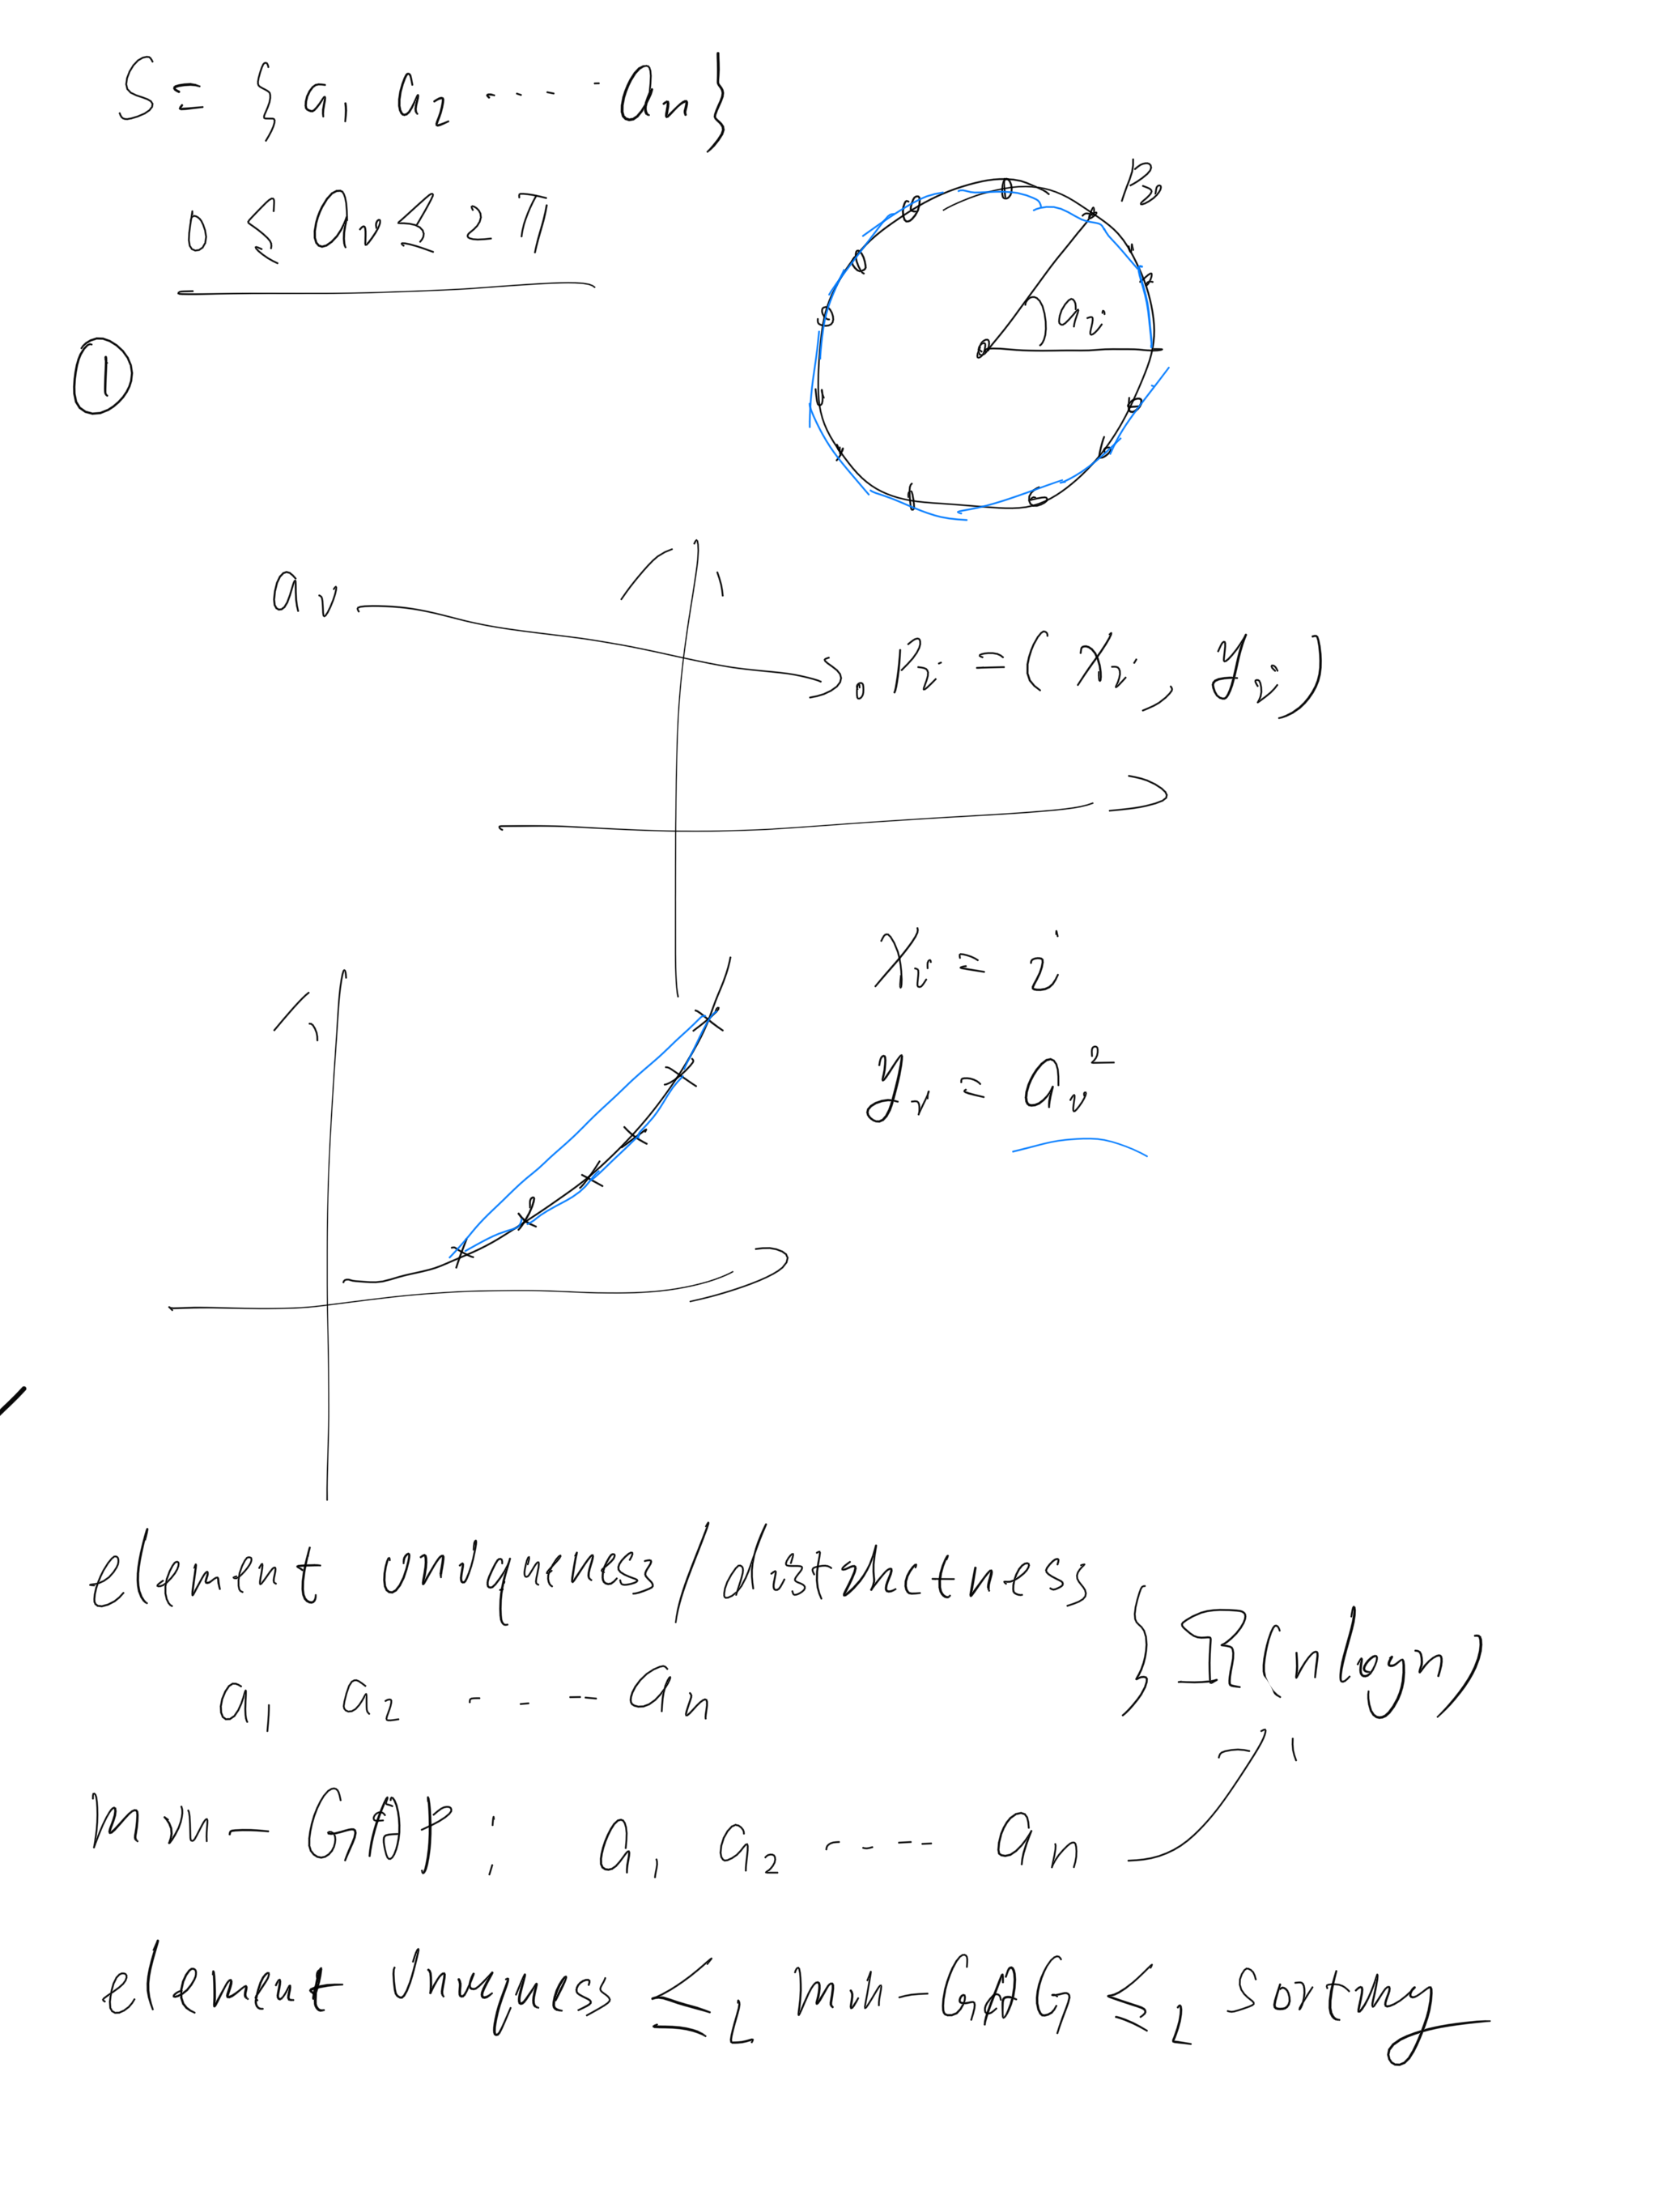 S = { a₁ a₂ ---- aₙ }
0 ≤ aᵢ ≤ 2π
①
Pᵢ
aᵢ
aᵢ Pᵢ = ( xᵢ , yᵢ )
xᵢ = i
yᵢ = aᵢ²
element uniqueness/distinctness
} Ω(n log n)
a₁ a₂ ---- aₙ
min-GAP : a₁ a₂ ---- aₙ
element uniqueness ≤_L min-GAG ≤_L sorting